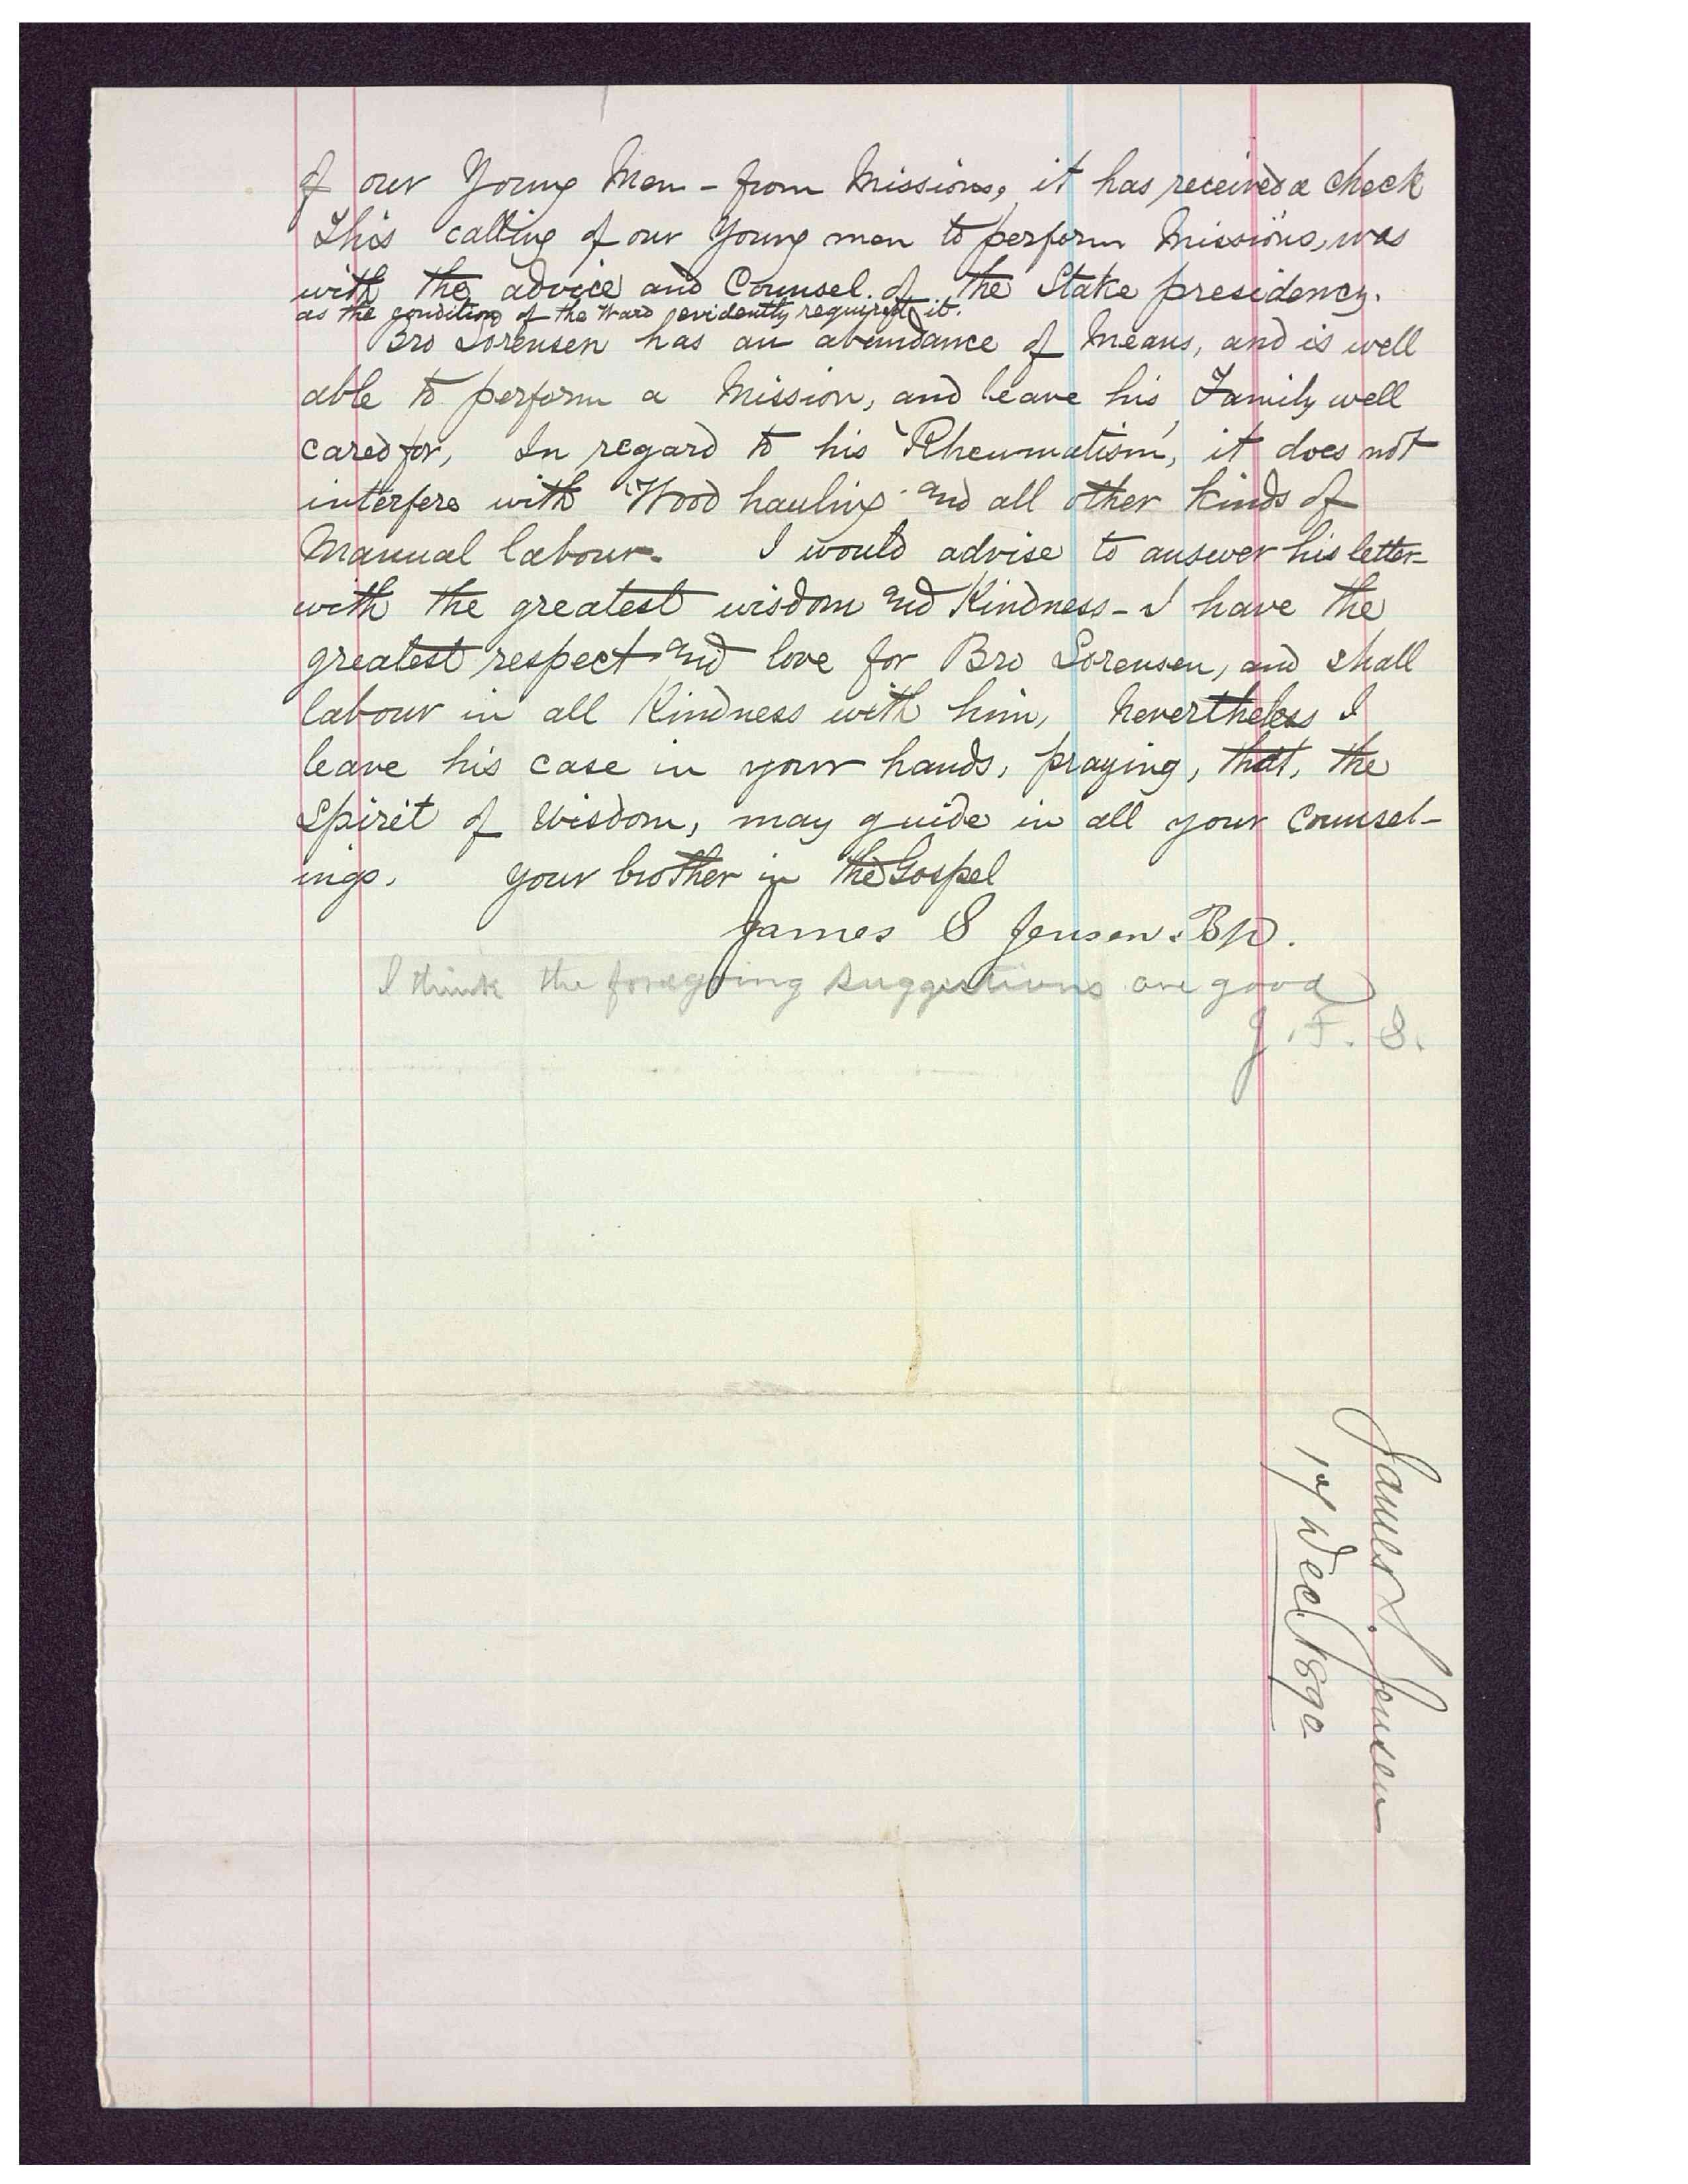 of our Young Men - from Missions, it has received a check
This calling of our Young men to perform Missions, was
with the advice and Counsel. of the Stake presidency.
as the condition of the Ward evidently required it.
Bro Sorensen has an abundance of Means, and is well
able to perform a Mission, and leave his Family well
cared for, In regard to his 'Rheumatism', it does not
interfere with "Wood hauling" and all other kinds of
Manual labour. I would advise to answer his letter-
with the greatest wisdom and Kindness - I have the
greatest respect and love for Bro Sorensen, and shall
labour in all Kindness with him, Nevertheless I
leave his case in your hands, praying, that, the
Spirit of Wisdom, may guide in all your Counsel-
ings. Your brother in the Gospel
James S Jensen. Bp.
I think the foregoing suggestions are good
J. F. S.
James S. Jensen
17 Dec 1890